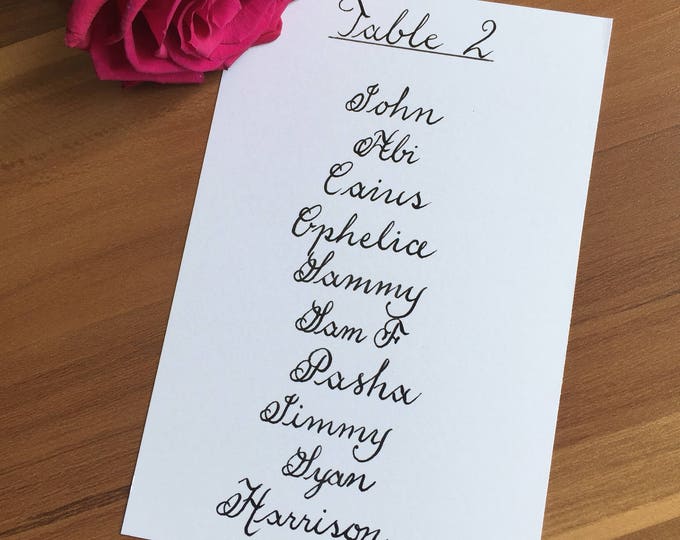 Table 2
John
Abi
Caius
Ophelia
Sammy
Sam F
Pasha
Jimmy
Syan
Harrison